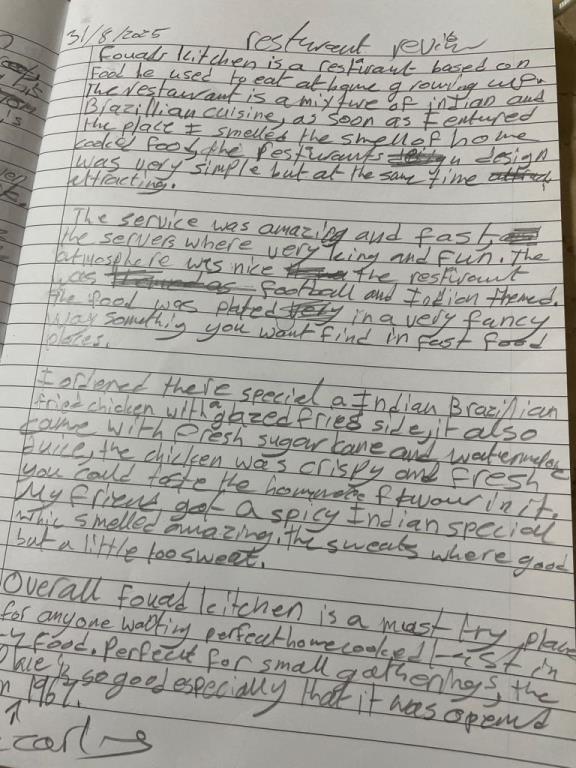 31/8/2025 resturant reviw
Fouads kitchen is a resturant based on
food he used to eat at home growing up.
The restaurant is a mixture of indian and
Brazillian cuisine, as soon as I entured
the place I smelled the smell of home
cooked food, the resturants design
was very simple but at the same time
attracting.
The service was amazing and fast,
the servers where very king and fun. The
atmosphere was nice the resturant
was football and Indian themed.
the food was plated in a very fancy
way something you want find in fast food
places.
I ordened there special a Indian Brazilian
fried chicken with a glazed fries side, it also
came with fresh sugar kane and watermelon
Juice, the chicken was crispy and fresh
you could taste the homemade flavour in it.
My friend got a spicy Indian special
whic smelled amazing, the sweats where good
but a little too sweat.
Overall fouad kitchen is a must try place
for anyone waiting perfect home cooked in
food. Perfect for small gatherings, the
is so good especially that it was opend
1967.